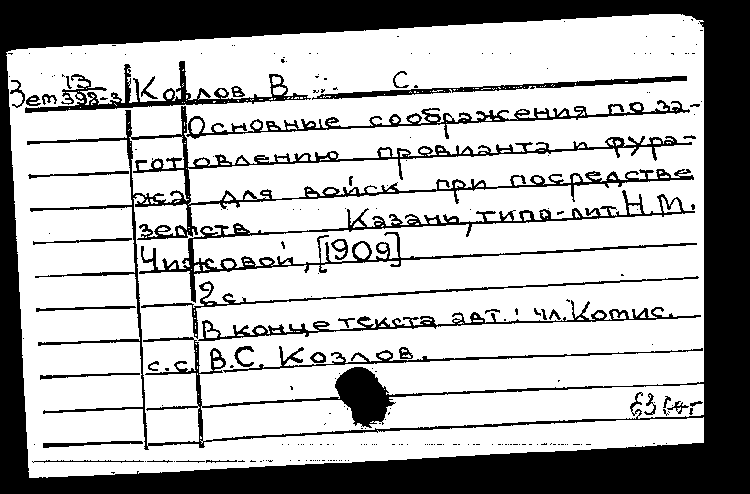 Зем 13/398-3 Козлов, В. С.
Основные соображения по за-
готовлению провианта и фура-
жа для войск при посредстве
земств. Казань, типо-лит. Н.М.
Чижовой, [1909].
2 с.
В конце текста авт.: чл. Комис.
с.с. В.С. Козлов.